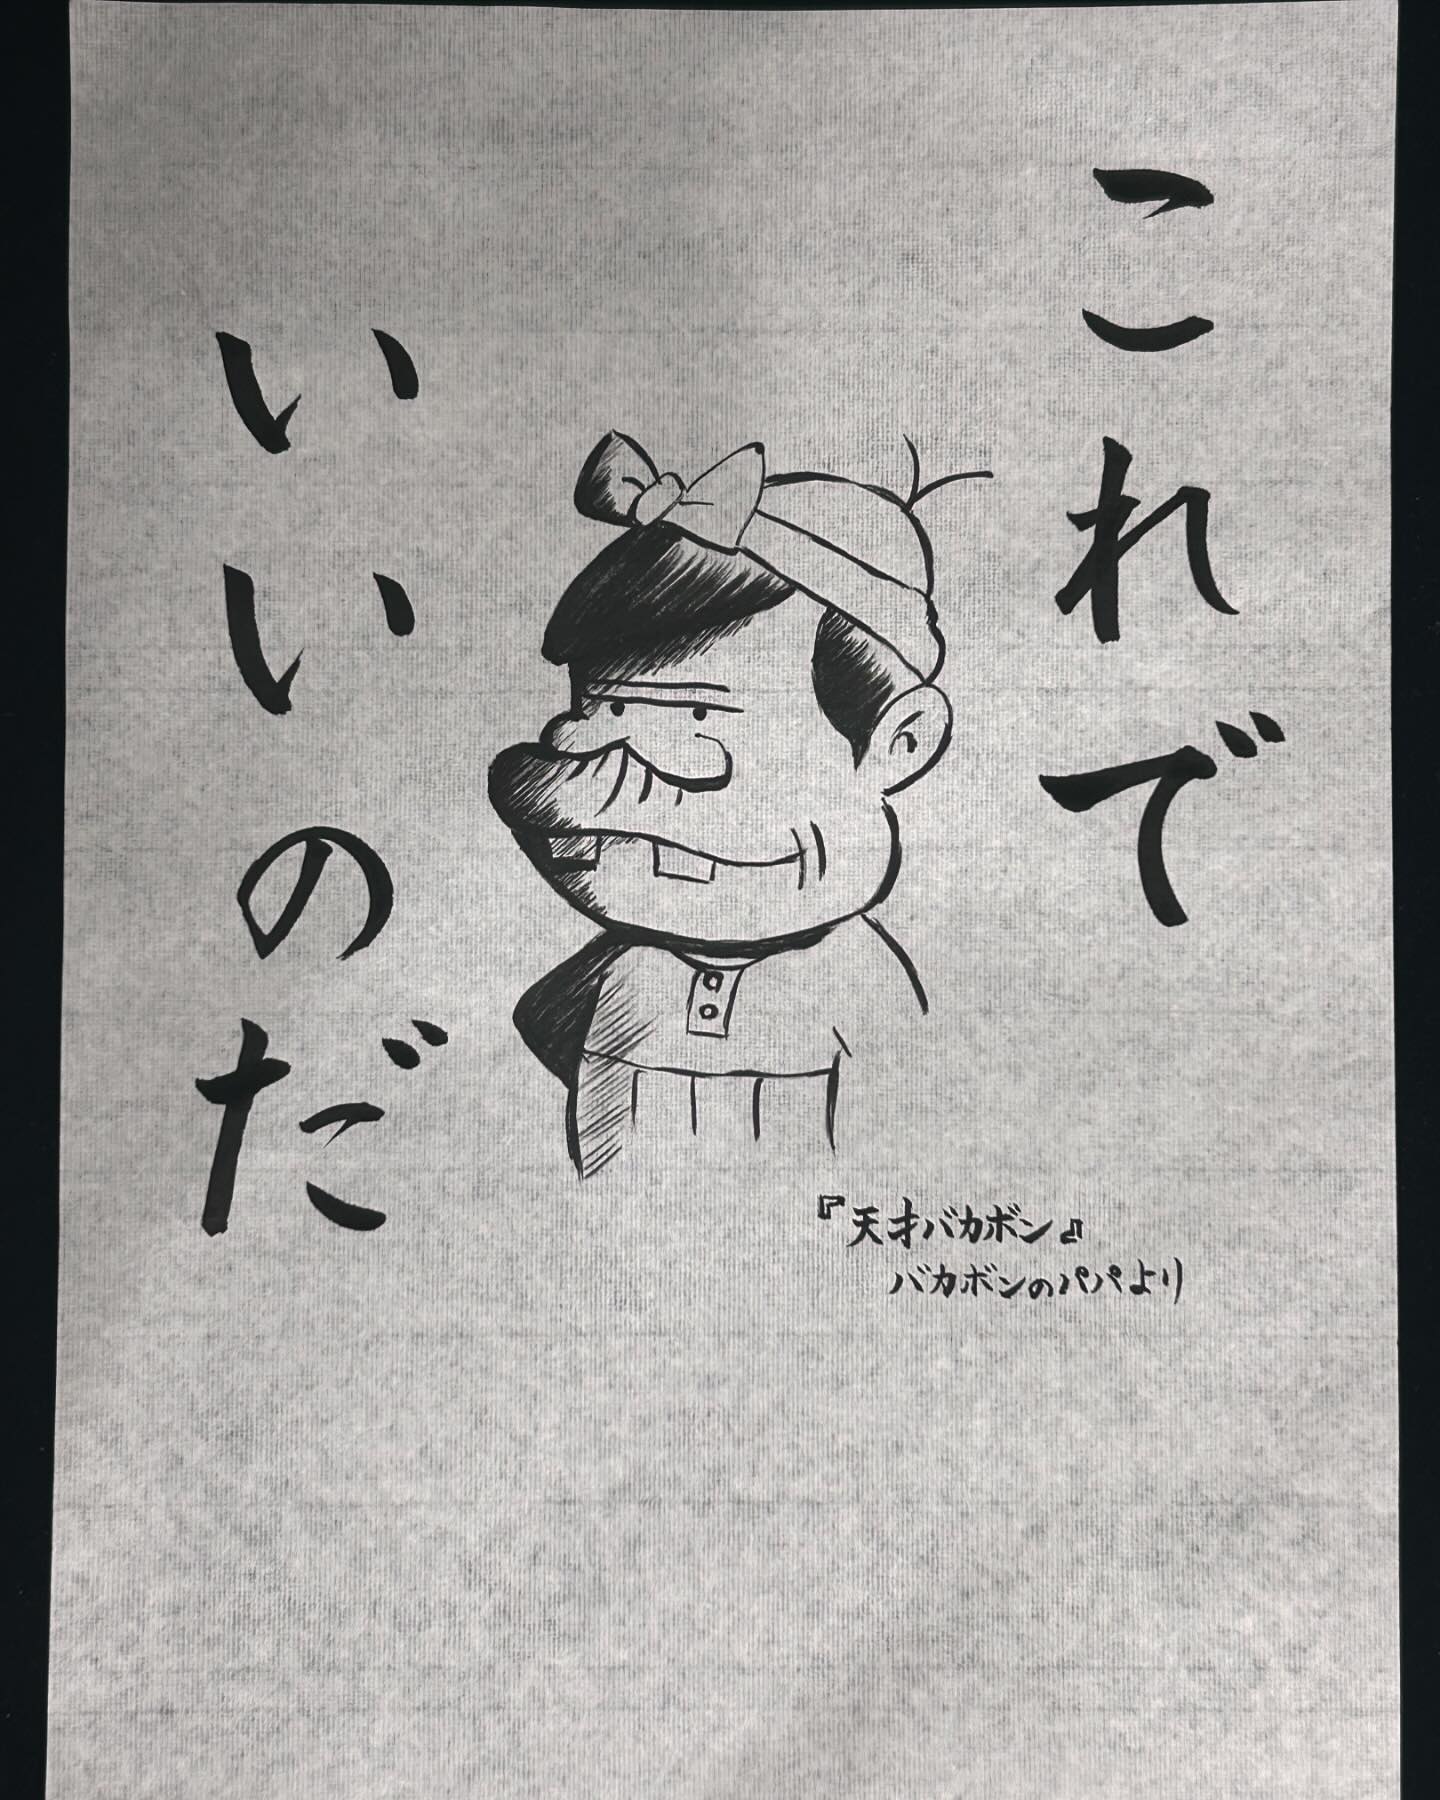 これで
いいのだ
『天才バカボン』
バカボンのパパより